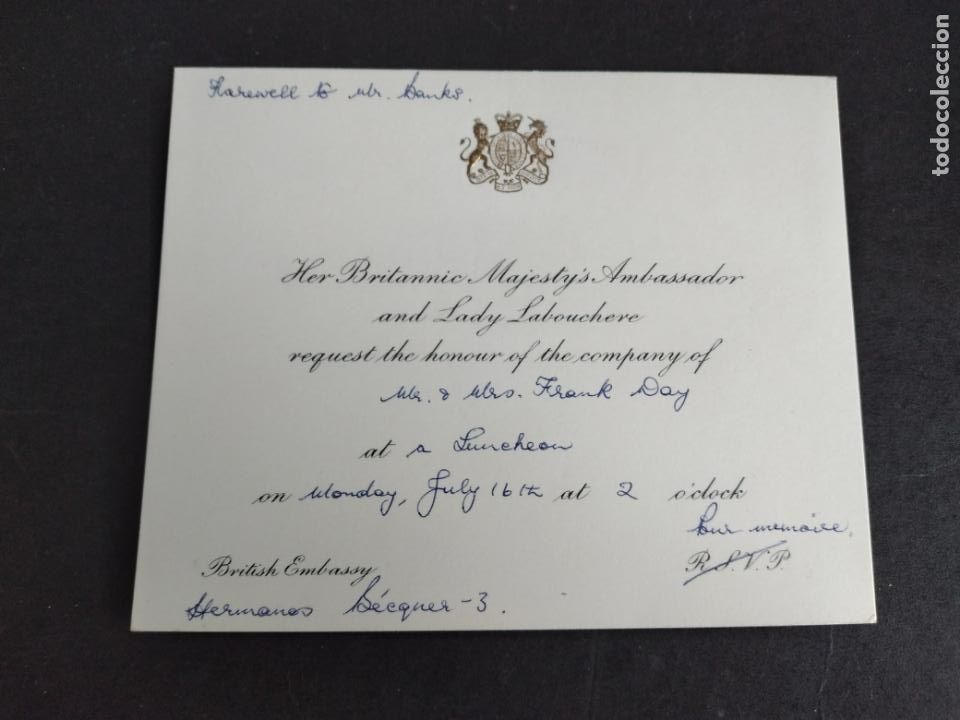 Farewell to Mr. Banks.
Her Britannic Majesty's Ambassador
and Lady Labouchere
request the honour of the company of
Mr. & Mrs. Frank Day
at a Luncheon
on Monday, July 16th at 2 o'clock
Pour memoire.
British Embassy R.S.V.P.
Hermanos Bécquer-3.
todocoleccion